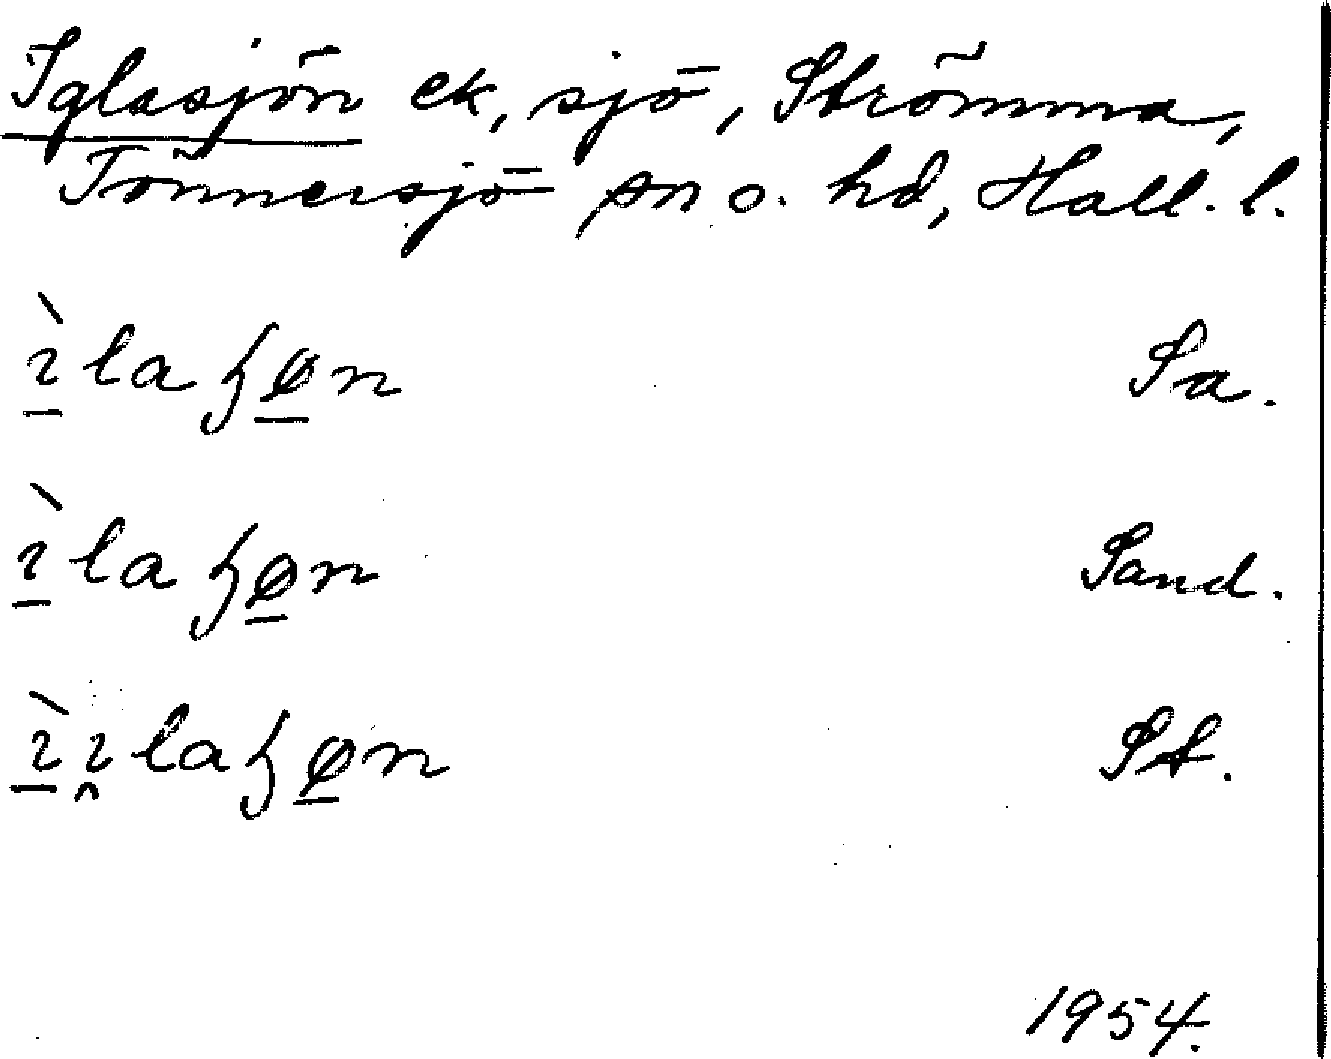 Iglasjön ek, sjö, Strömma,
Tönnersjö sn o. hd, Hall. l.
ı̱̀laɧø̱n Sa.
ı̱̀laɧø̱n Sand.
ı̱̀ı̯laɧø̱n St.
1954.